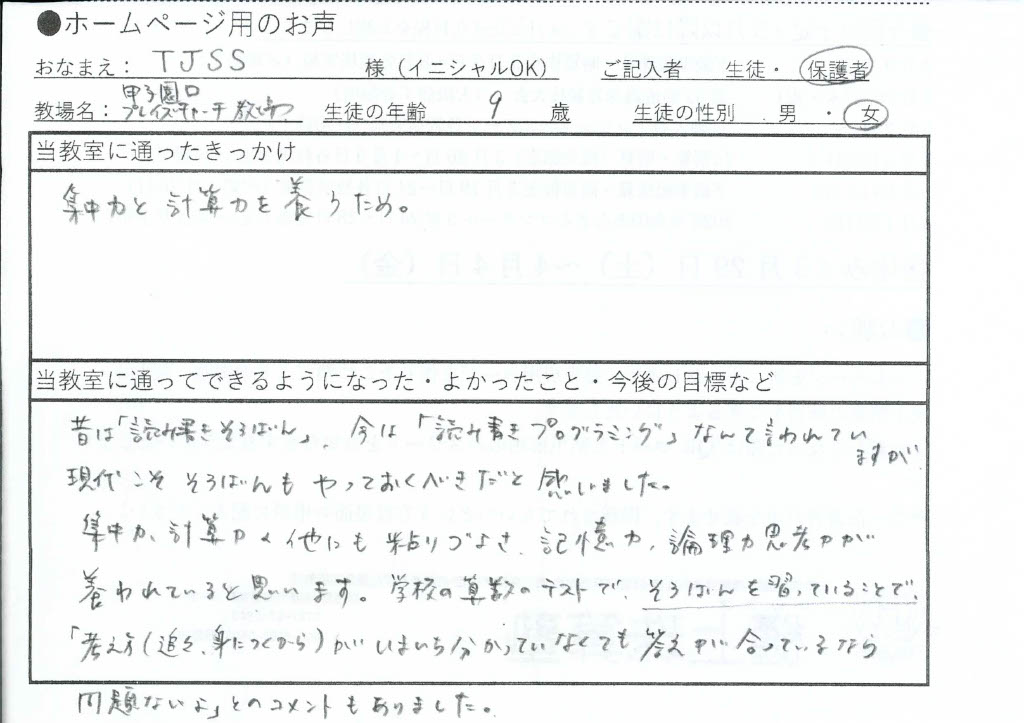 ●ホームページ用のお声
おなまえ： TJSS 様（イニシャルOK） ご記入者 生徒・保護者
教場名： 甲子園口プレイズチャーチ教場 生徒の年齢 9 歳 生徒の性別 男・女
当教室に通ったきっかけ
集中力と計算力を養うため。
当教室に通ってできるようになった・よかったこと・今後の目標など
昔は「読み書きそろばん」、今は「読み書きプログラミング」なんて言われていますが
現代こそそろばんもやっておくべきだと感じました。
集中力、計算力の他にも粘りづよさ、記憶力、論理力思考力が
養われていると思います。学校の算数のテストで、そろばんを習っていることで、
「考え方（追々、身につくから）がいまいち分かっていなくても答えが合っているなら
問題ないよ」とのコメントもありました。